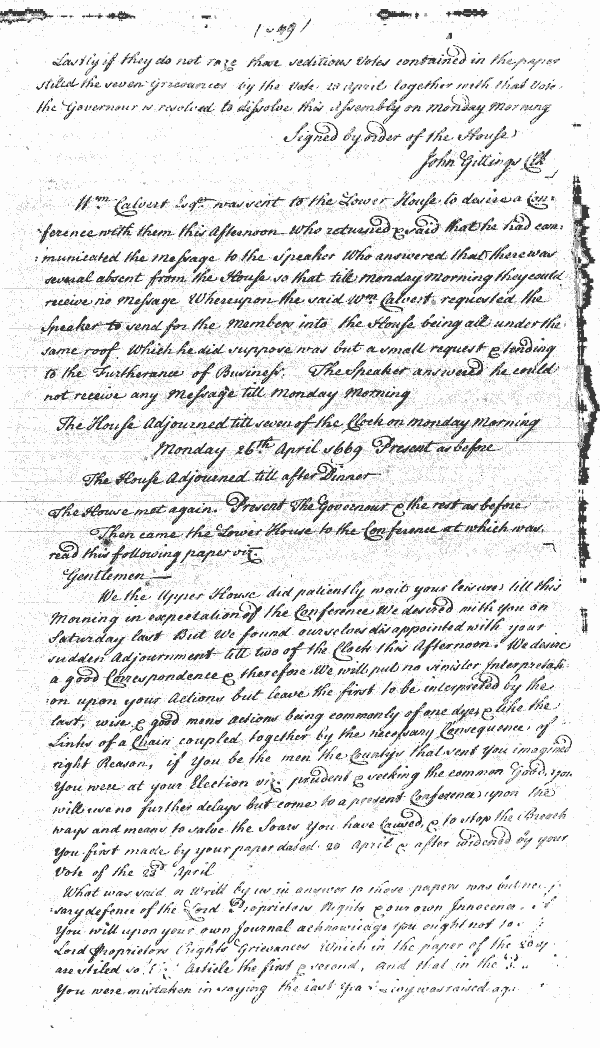 Lastly if they do not raze those seditious Votes contained in the paper
stiled the seven Grievances by the Vote 23 April together with that Vote
the Governour is resolved to dissolve this Assembly on Monday Morning
Signed by order of the House
John Gittings Clk
Wm Calvert Esqr was sent to the Lower House to desire a Con-
ference with them this Afternoon Who returned & said that he had com-
municated the Message to the Speaker Who answered that there was
several absent from the House so that till Monday Morning they could
receive no Message Whereupon the said Wm Calvert requested the
Speaker to send for the Members into the House being all under the
same roof, Which he did suppose was but a small request & tending
to the Furtherance of Business, The Speaker answered he could
not receive any Message till Monday Morning
The House Adjourned till seven of the Clock on Monday Morning
Monday 26th April 1669 Present as before
The House Adjourned till after Dinner
The House met again. Present The Governour & the rest as before
Then came the Lower House to the Conference at which was
read this following paper viz
Gentlemen
We the Upper House did patiently wait your leisure till this
Morning in expectation of the Conference We desired with you on
Saturday last But We found ourselves disappointed with your
sudden Adjournment till two of the Clock this Afternoon. We desire
a good Correspondence & therefore We will put no sinister Interpretati-
on upon your Actions but leave the first to be interpreted by the
last, wise & good mens actions being commonly of one dye & like the
Links of a Chain coupled together by the necessary Consequence of
right Reason, if You be the men the Countys that sent You imagined
You were at your Election viz prudent & seeking the common Good, you
will use no further delays but come to a present Conference upon the
ways and means to salve the Soars You have Caused, & to stop the Breach
You first made by your paper dated 20 April & after widened by your
Vote of the 23d April
What was said or Writt by us in answer to those papers was but
sary defence of the Lord Proprietors Rights & our own Innocence
You will upon your own Journal acknowledge You ought not to
Lord Proprietors Rights Grievances Which in the paper of the
are stiled so Article the first & second, and that in the
You were mistaken in saying the last was raised